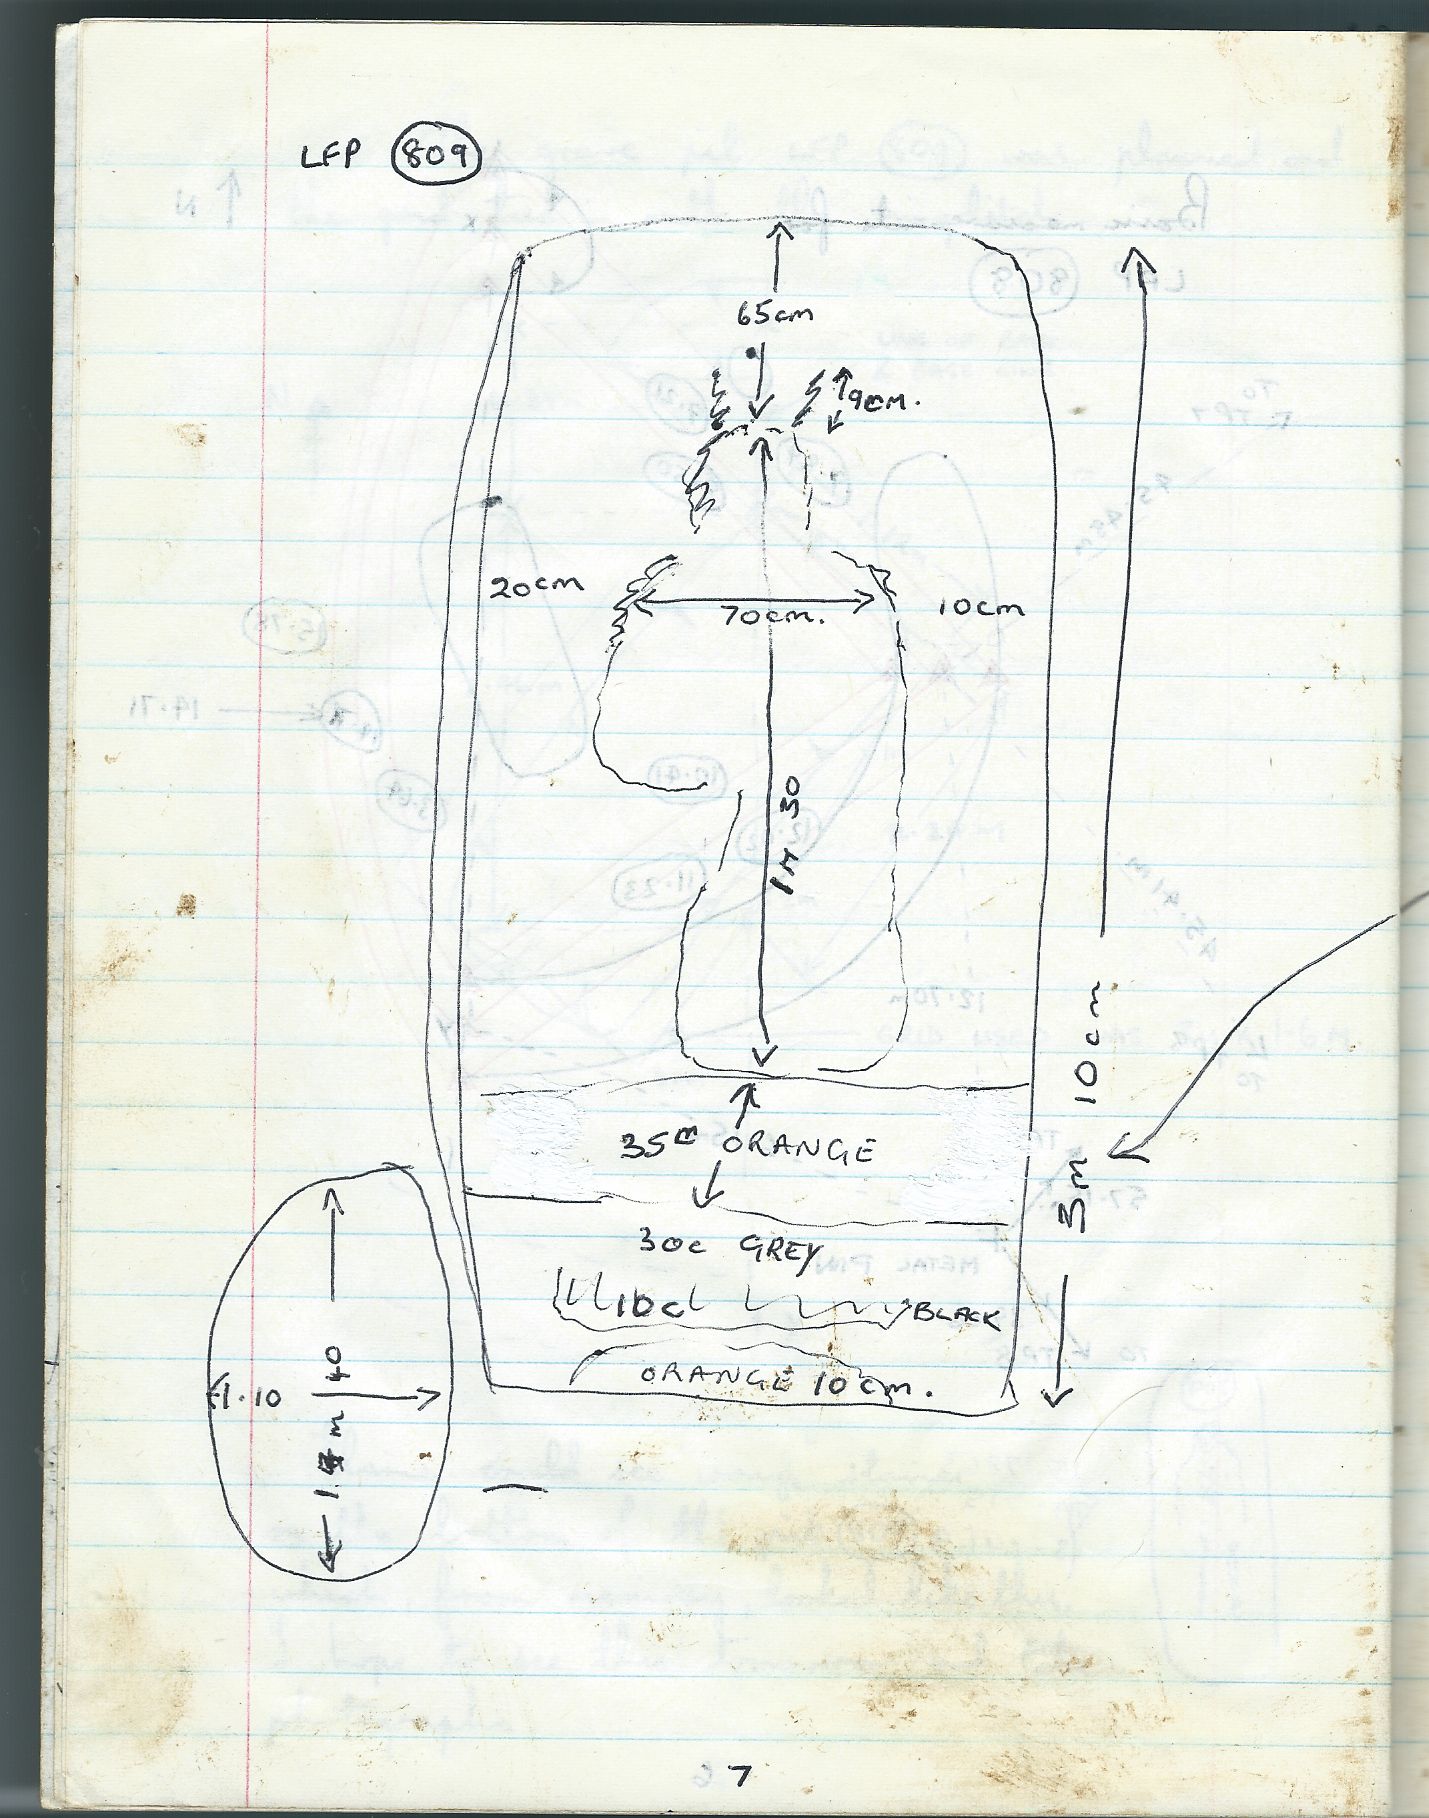 LFP 809
65cm
9cm.
20cm
70cm.
10cm
1M 30
35cm ORANGE
30c GREY
10c BLACK
ORANGE 10cm.
3m 10cm
1.10
40
7